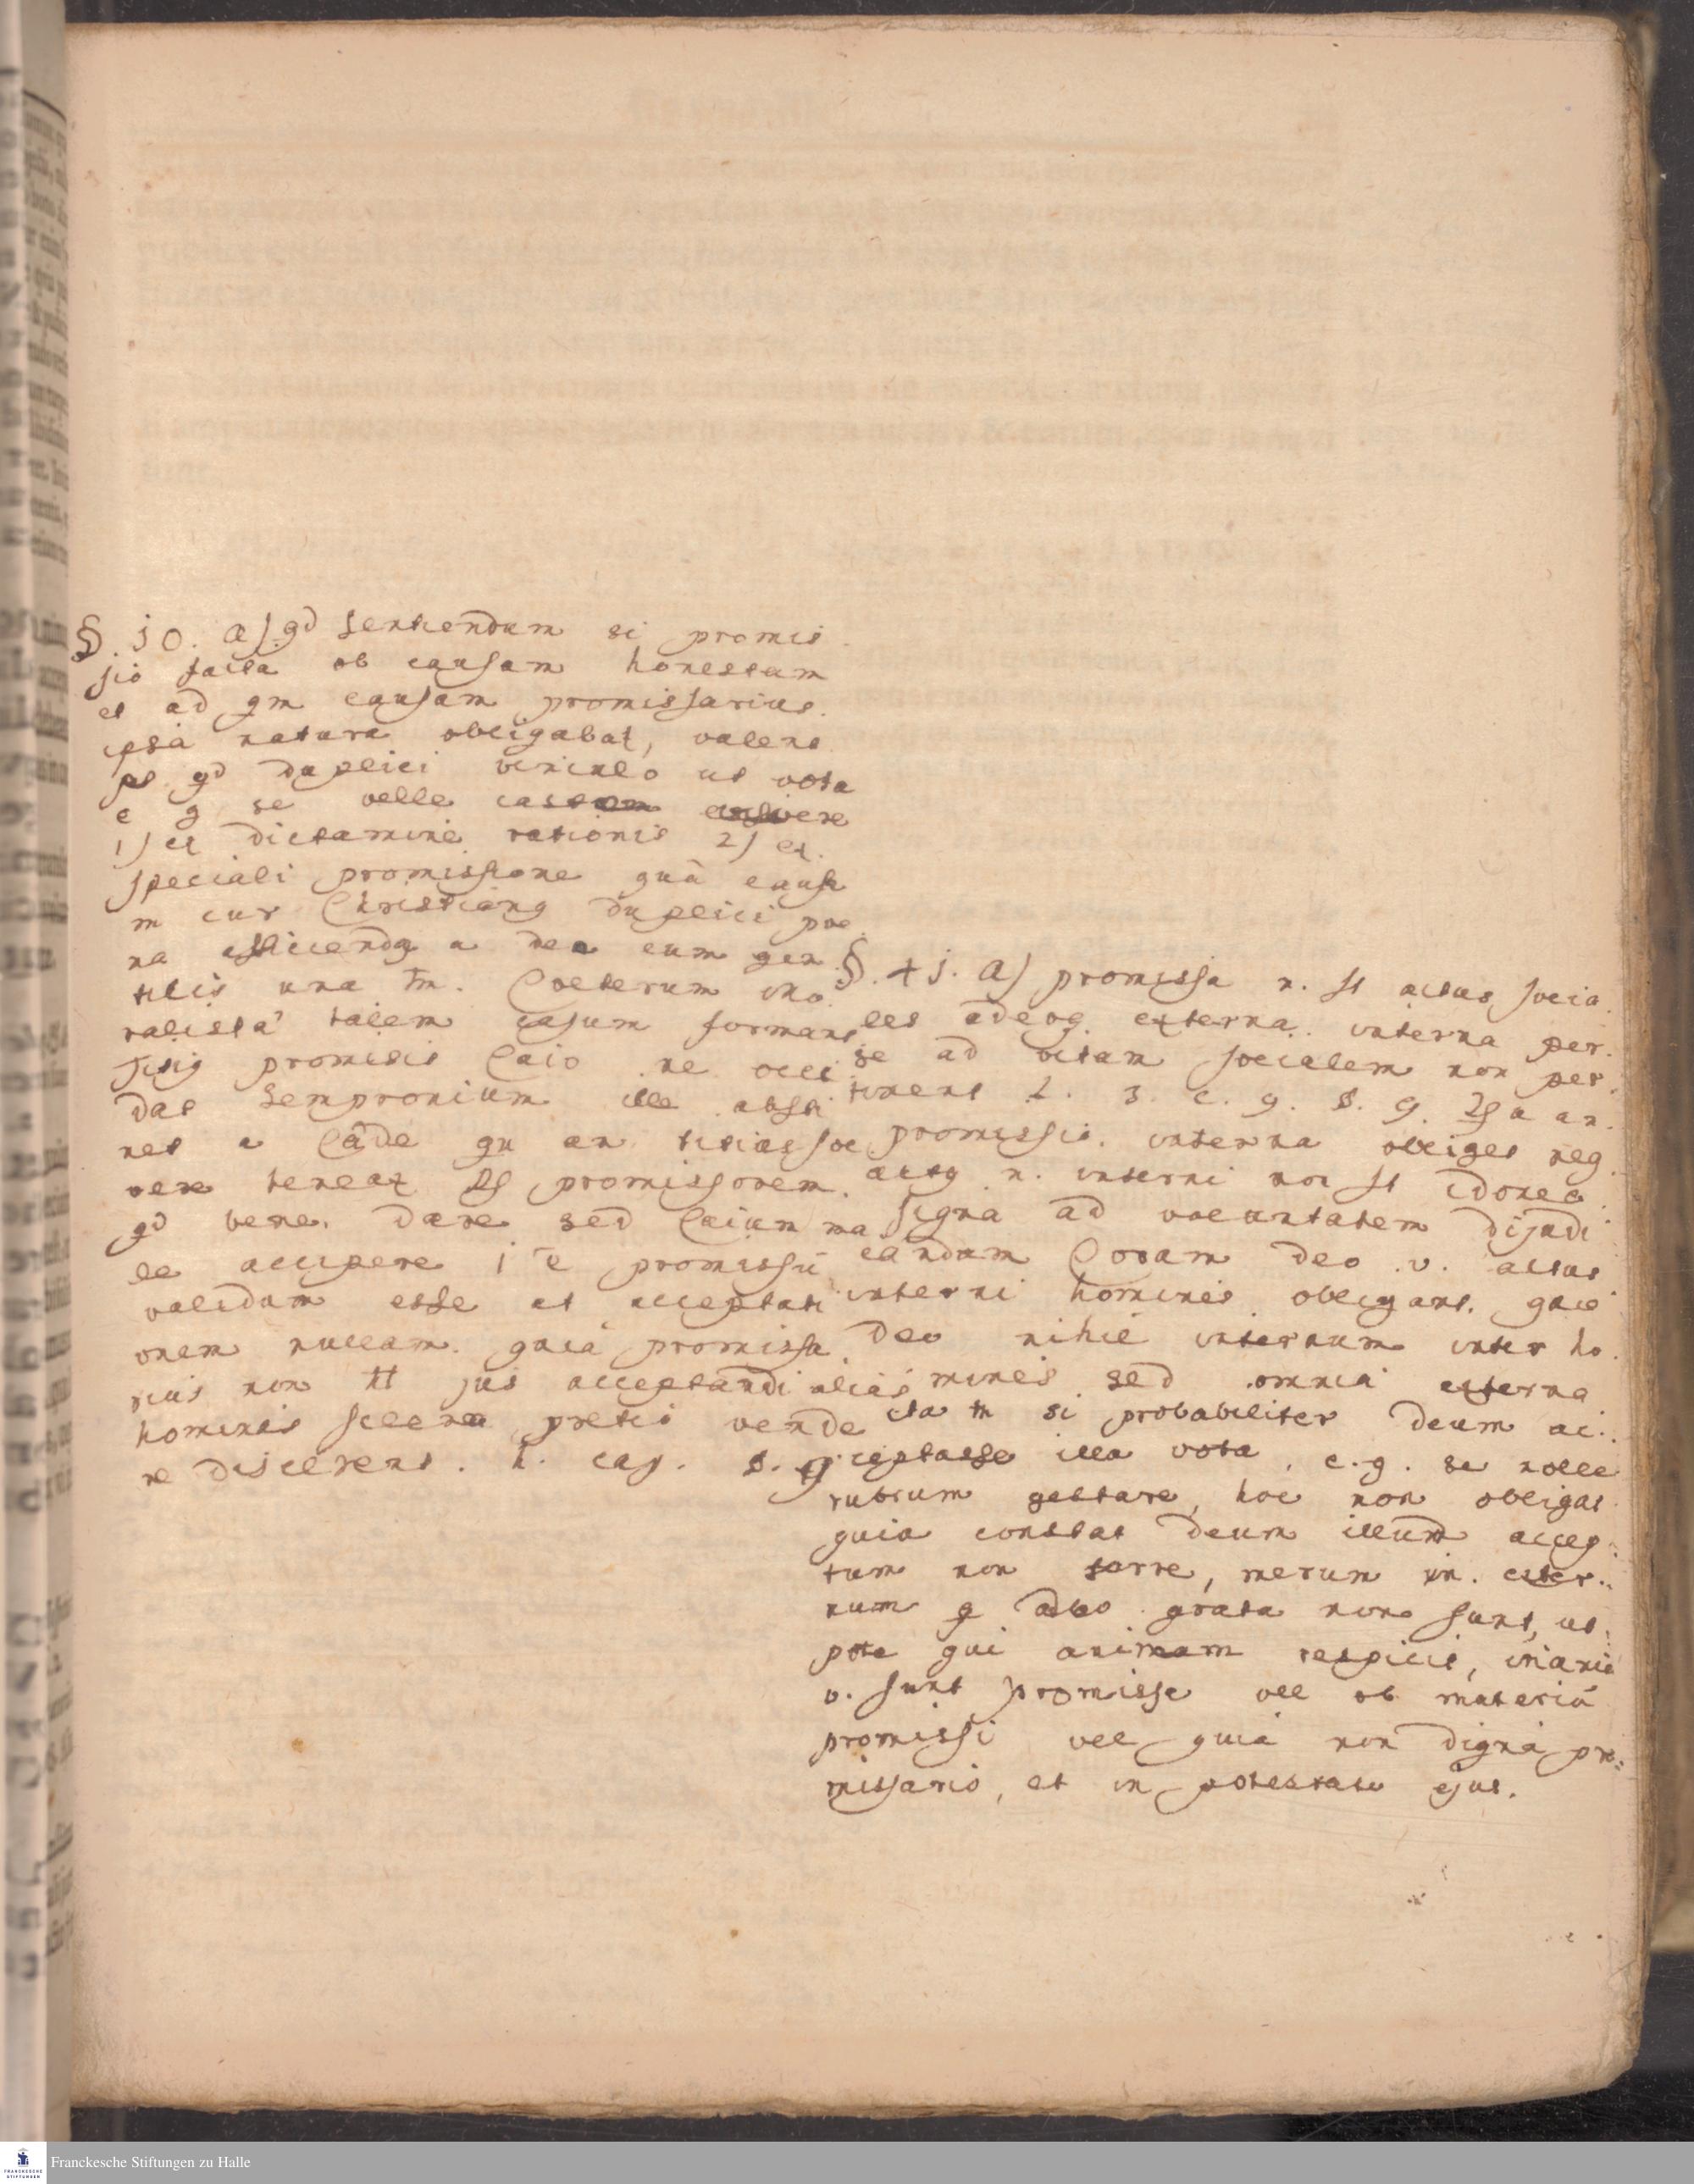 §. 30. a) qd sentiendum si promis
sio facta ob causam honestam
et ad qm causam promissarius
ipsa natura obligabat, valent
qd duplici vinculo ut vota
e g se velle
1) ex dictamine rationis 2) ex
speciali promissione qua causa
m cur Christiang duplici poe
na afficiendg a deo cum gen
tilis una tm. Coeterum mo
ralista talem casum formant
promisit Caio ne occi
dat Sempronium ille absti
net a Cade qu an titius sol
vere teneat promissorem
qd bene dare sed Caium ma
le accipere i e promissu
validum esse et acceptati
onem nullam. quia promissa
rius non jus acceptandi alias
homines scelera pretio vende
re discerent. h. cap. §. 9
§. 41. a) promissa n. st actus socia
les adeoq externa. interna per
se ad vitam socialem non per
tinent l. 3. c. 9. §. 9. an
promissio interna obliget neg
actq n. interni non st idonea
signa ad voluntatem dijudi
candam Coram deo v. actus
interni hominis obligant. quia
deo nihil internum inter ho
mines sed omnia externa
ita tn si probabiliter deum ac
ceptasse illa vota, e. g. se nolle
rubrum gestare, hoc non obligat
quia constat deum illum accep
tum non ferre, merum in. exter
num q adeo grata non sunt, ut
pote qui animam respicit, inania
v. sunt promissa vel ob materia
promissi vel quia non digna pro
missario, et in potestate ejus.
Franckesche Stiftungen zu Halle